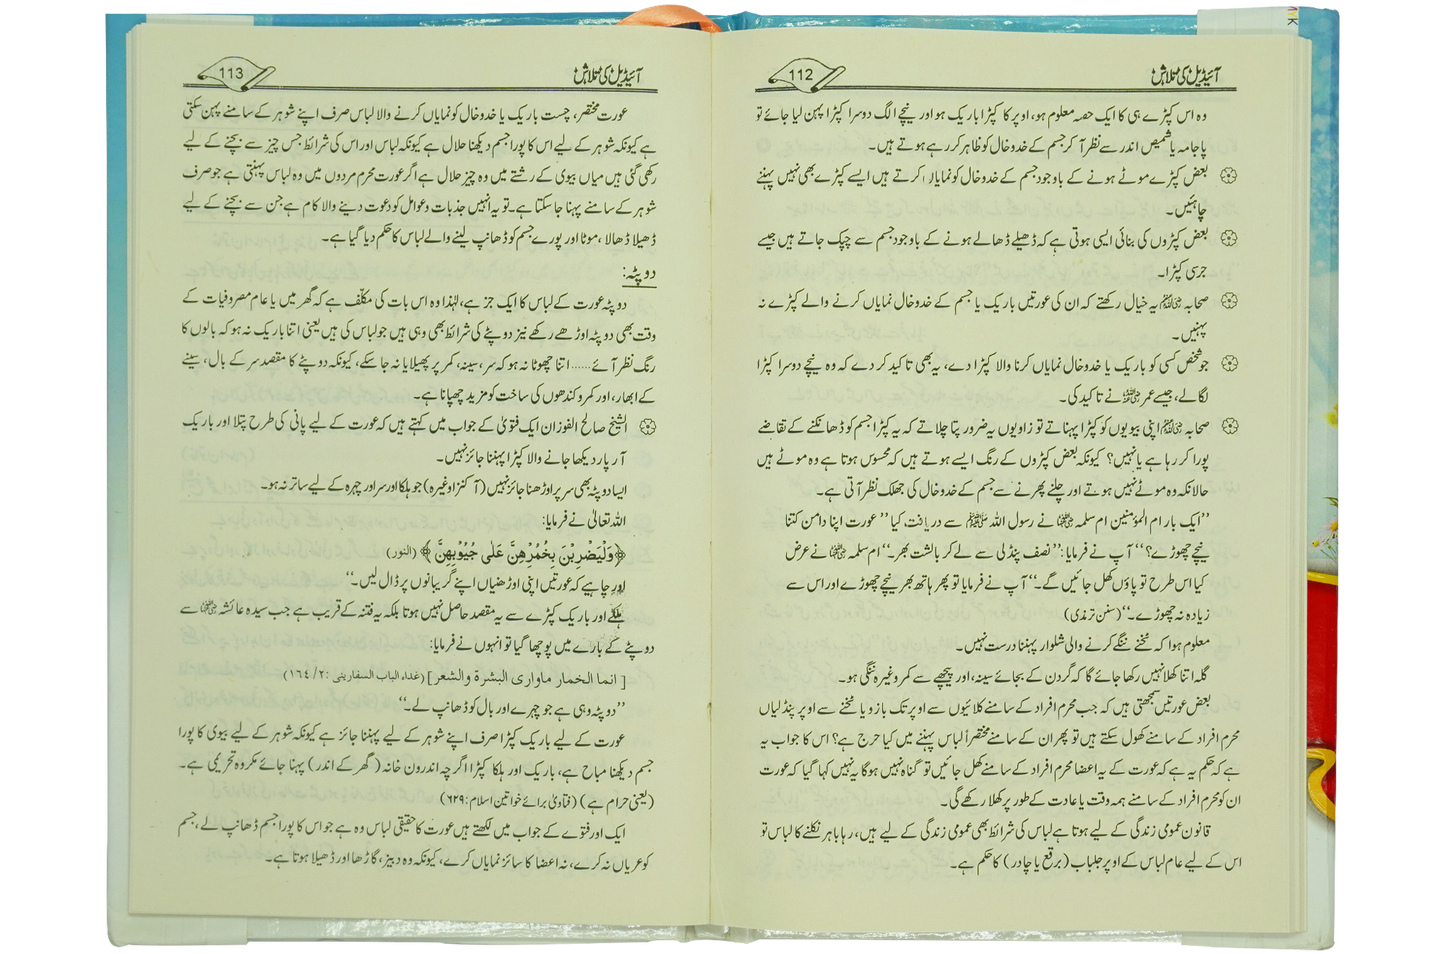 آئیڈیل کی تلاش
112
وہ اس کپڑے ہی کا ایک حصہ معلوم ہو، اوپر کا کپڑا باریک ہو اور نیچے الگ دوسرا کپڑا پہن لیا جائے تو
پاجامہ یا شمیض اندر سے نظر آ کر جسم کے خدوخال کو ظاہر کر رہے ہوتے ہیں۔
بعض کپڑے موٹے ہونے کے باوجود جسم کے خدوخال کو نمایاں کرتے ہیں ایسے کپڑے بھی نہیں پہننے
چاہئیں۔
بعض کپڑوں کی بنائی ایسی ہوتی ہے کہ ڈھیلے ڈھالے ہونے کے باوجود جسم سے چپک جاتے ہیں جیسے
جرسی کپڑا۔
صحابہ ﷢ یہ خیال رکھتے کہ ان کی عورتیں باریک یا جسم کے خدوخال نمایاں کرنے والے کپڑے نہ
پہنیں۔
جو شخص کسی کو باریک یا خدوخال نمایاں کرنا والا کپڑا دے، یہ بھی تاکید کر دے کہ وہ نیچے دوسرا کپڑا
لگا لے، جیسے عمر ﷜ نے تاکید کی۔
صحابہ ﷢ اپنی بیویوں کو کپڑا پہناتے تو زاویوں یہ ضرور پتا چلاتے کہ یہ کپڑا جسم کو ڈھانکنے کے تقاضے
پورا کر رہا ہے یا نہیں؟ کیونکہ بعض کپڑوں کے رنگ ایسے ہوتے ہیں کہ محسوس ہوتا ہے وہ موٹے ہیں
حالانکہ وہ موٹے نہیں ہوتے اور چلنے پھرنے سے جسم کے خدوخال کی جھلک نظر آتی ہے۔
’’ایک بار ام المؤمنین ام سلمہ ﷞ نے رسول اللہ ﷺ سے دریافت کیا ’’عورت اپنا دامن کتنا
نیچے چھوڑے؟‘‘ آپ نے فرمایا: ’’نصف پنڈلی سے لے کر بالشت بھر۔‘‘ ام سلمہ ﷞ نے عرض
کیا اس طرح تو پاؤں کھل جائیں گے۔‘‘ آپ نے فرمایا تو پھر ہاتھ بھر نیچے چھوڑے اور اس سے
زیادہ نہ چھوڑے۔‘‘ (سنن ترمذی)
معلوم ہوا کہ ٹخنے ننگے کرنے والی شلوار پہننا درست نہیں۔
گلہ اتنا کھلا نہیں رکھا جائے گا کہ گردن کے بجائے سینہ، اور پیچھے سے کمر وغیرہ ننگی ہو۔
بعض عورتیں سمجھتی ہیں کہ جب محرم افراد کے سامنے کلائیوں سے اوپر تک بازو یا ٹخنے سے اوپر پنڈلیاں
محرم افراد کے سامنے کھول سکتے ہیں تو پھر ان کے سامنے مختصراً لباس پہننے میں کیا حرج ہے؟ اس کا جواب یہ
ہے کہ حکم یہ ہے کہ عورت کے یہ اعضا محرم افراد کے سامنے کھل جائیں تو گناہ نہیں ہوگا یہ نہیں کہا گیا کہ عورت
ان کو محرم افراد کے سامنے ہمہ وقت یا عادت کے طور پر کھلا رکھے گی۔
قانون عمومی زندگی کے لیے ہوتا ہے لباس کی شرائط بھی عمومی زندگی کے لیے ہیں، رہا باہر نکلنے کا لباس تو
اس کے لیے عام لباس کے اوپر جلباب (برقع یا چادر) کا حکم ہے۔
آئیڈیل کی تلاش
113
عورت مختصر، چست باریک یا خدوخال کو نمایاں کرنے والا لباس صرف اپنے شوہر کے سامنے پہن سکتی
ہے کیونکہ شوہر کے لیے اس کا پورا جسم دیکھنا حلال ہے کیونکہ لباس اور اس کی شرائط جس چیز سے بچنے کے لیے
رکھی گئی ہیں میاں بیوی کے رشتے میں وہ چیز حلال ہے اگر عورت محرم مردوں میں وہ لباس پہنتی ہے جو صرف
شوہر کے سامنے پہنا جا سکتا ہے۔ تو یہ انہیں جذبات وعوامل کو دعوت دینے والا کام ہے جن سے بچنے کے لیے
ڈھیلا ڈھالا، موٹا اور پورے جسم کو ڈھانپ لینے والے لباس کا حکم دیا گیا ہے۔
دوپٹہ:
دوپٹہ عورت کے لباس کا ایک جز ہے، لہٰذا وہ اس بات کی مکلّف ہے کہ گھر میں یا عام مصروفیات کے
وقت بھی دوپٹہ اوڑھے رکھے نیز دوپٹے کی شرائط بھی وہی ہیں جو لباس کی ہیں یعنی اتنا باریک نہ ہو کہ بالوں کا
رنگ نظر آئے......اتنا چھوٹا نہ ہو کہ سر، سینہ، کمر پر پھیلایا نہ جا سکے، کیونکہ دوپٹے کا مقصد سر کے بال، سینے
کے ابھار، اور کمر و کندھوں کی ساخت کو مزید چھپانا ہے۔
الشیخ صالح الفوزان ایک فتویٰ کے جواب میں کہتے ہیں کہ عورت کے لیے پانی کی طرح پتلا اور باریک
آر پار دیکھا جانے والا کپڑا پہننا جائز نہیں۔
ایسا دوپٹہ بھی سر پر اوڑھنا جائز نہیں (آ کنز اوغیرہ) جو ہلکا اور سر اور چہرہ کے لیے ساتر نہ ہو۔
اللہ تعالیٰ نے فرمایا:
﴿وَلْيَضْرِبْنَ بِخُمُرِهِنَّ عَلٰى جُيُوْبِهِنَّ﴾ (النور)
اور چاہیے کہ عورتیں اپنی اوڑھنیاں اپنے گریبانوں پر ڈال لیں۔‘‘
ہلکے اور باریک کپڑے سے یہ مقصد حاصل نہیں ہوتا بلکہ یہ فتنہ کے قریب ہے جب سیدہ عائشہ ﷞ سے
دوپٹے کے بارے میں پوچھا گیا تو انہوں نے فرمایا:
[انما الخمار ماوارى البشرة والشعر] (غذاء الباب السفارینی :۲/ ۱٦٤)
’’دوپٹہ وہی ہے جو چہرے اور بال کو ڈھانپ لے۔‘‘
عورت کے لیے باریک کپڑا صرف اپنے شوہر کے لیے پہننا جائز ہے کیونکہ شوہر کے لیے بیوی کا پورا
جسم دیکھنا مباح ہے، باریک اور ہلکا کپڑا اگرچہ اندرون خانہ (گھر کے اندر) پہنا جائے مکروہ تحریمی ہے۔
(یعنی حرام ہے) (فتاویٰ برائے خواتین اسلام: ۶۲۹)
ایک اور فتوے کے جواب میں لکھتے ہیں عورت کا حقیقی لباس وہ ہے جو اس کا پورا جسم ڈھانپ لے، جسم
کو عریاں نہ کرے، نہ اعضا کا سائز نمایاں کرے، کیونکہ وہ دبیز، گاڑھا اور ڈھیلا ہوتا ہے۔